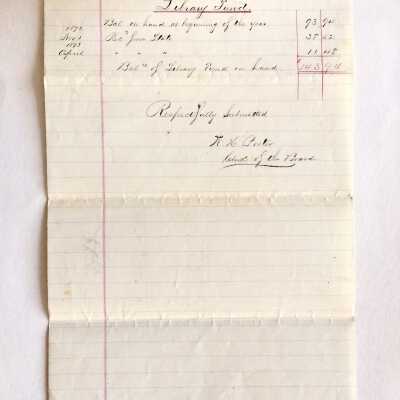 Library Fund.
1892 Bal. on hand at beginning of the year 93 94
Nov 1 Rec'd from State 38 52
1893
April " " " 11 48
Bal. of Library Fund on hand 143 94
Respectfully Submitted
Clerk of the Board